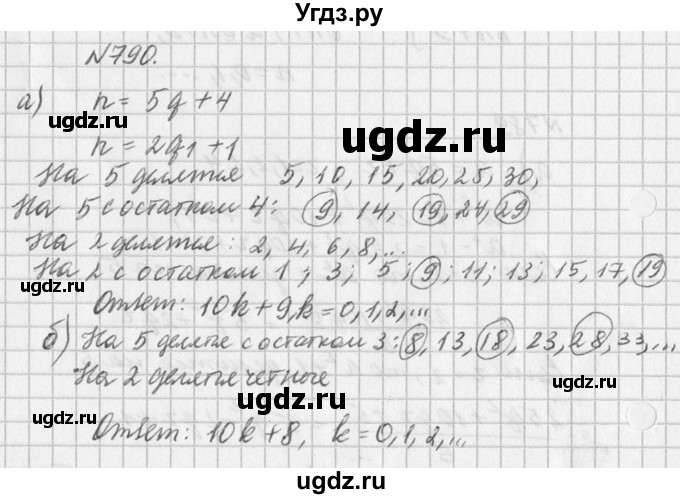 Угдз.ру
№790.
а) n = 5q + 4
n = 2q₁ + 1
На 5 делятся 5, 10, 15, 20, 25, 30,
На 5 с остатком 4: 9, 14, 19, 24, 29
На 2 делятся: 2, 4, 6, 8, ...
На 2 с остатком 1; 3; 5; 9; 11; 13; 15, 17, 19
Ответ: 10k + 9, k = 0, 1, 2, ...
б) На 5 делятся с остатком 3: 8, 13, 18, 23, 28, 33, ...
На 2 делятся четные
Ответ: 10k + 8, k = 0, 1, 2, ...
ugdz.ru
ugdz.ru
ugdz.ru
ugdz.ru
ugdz.ru
ugdz.ru
ugdz.ru